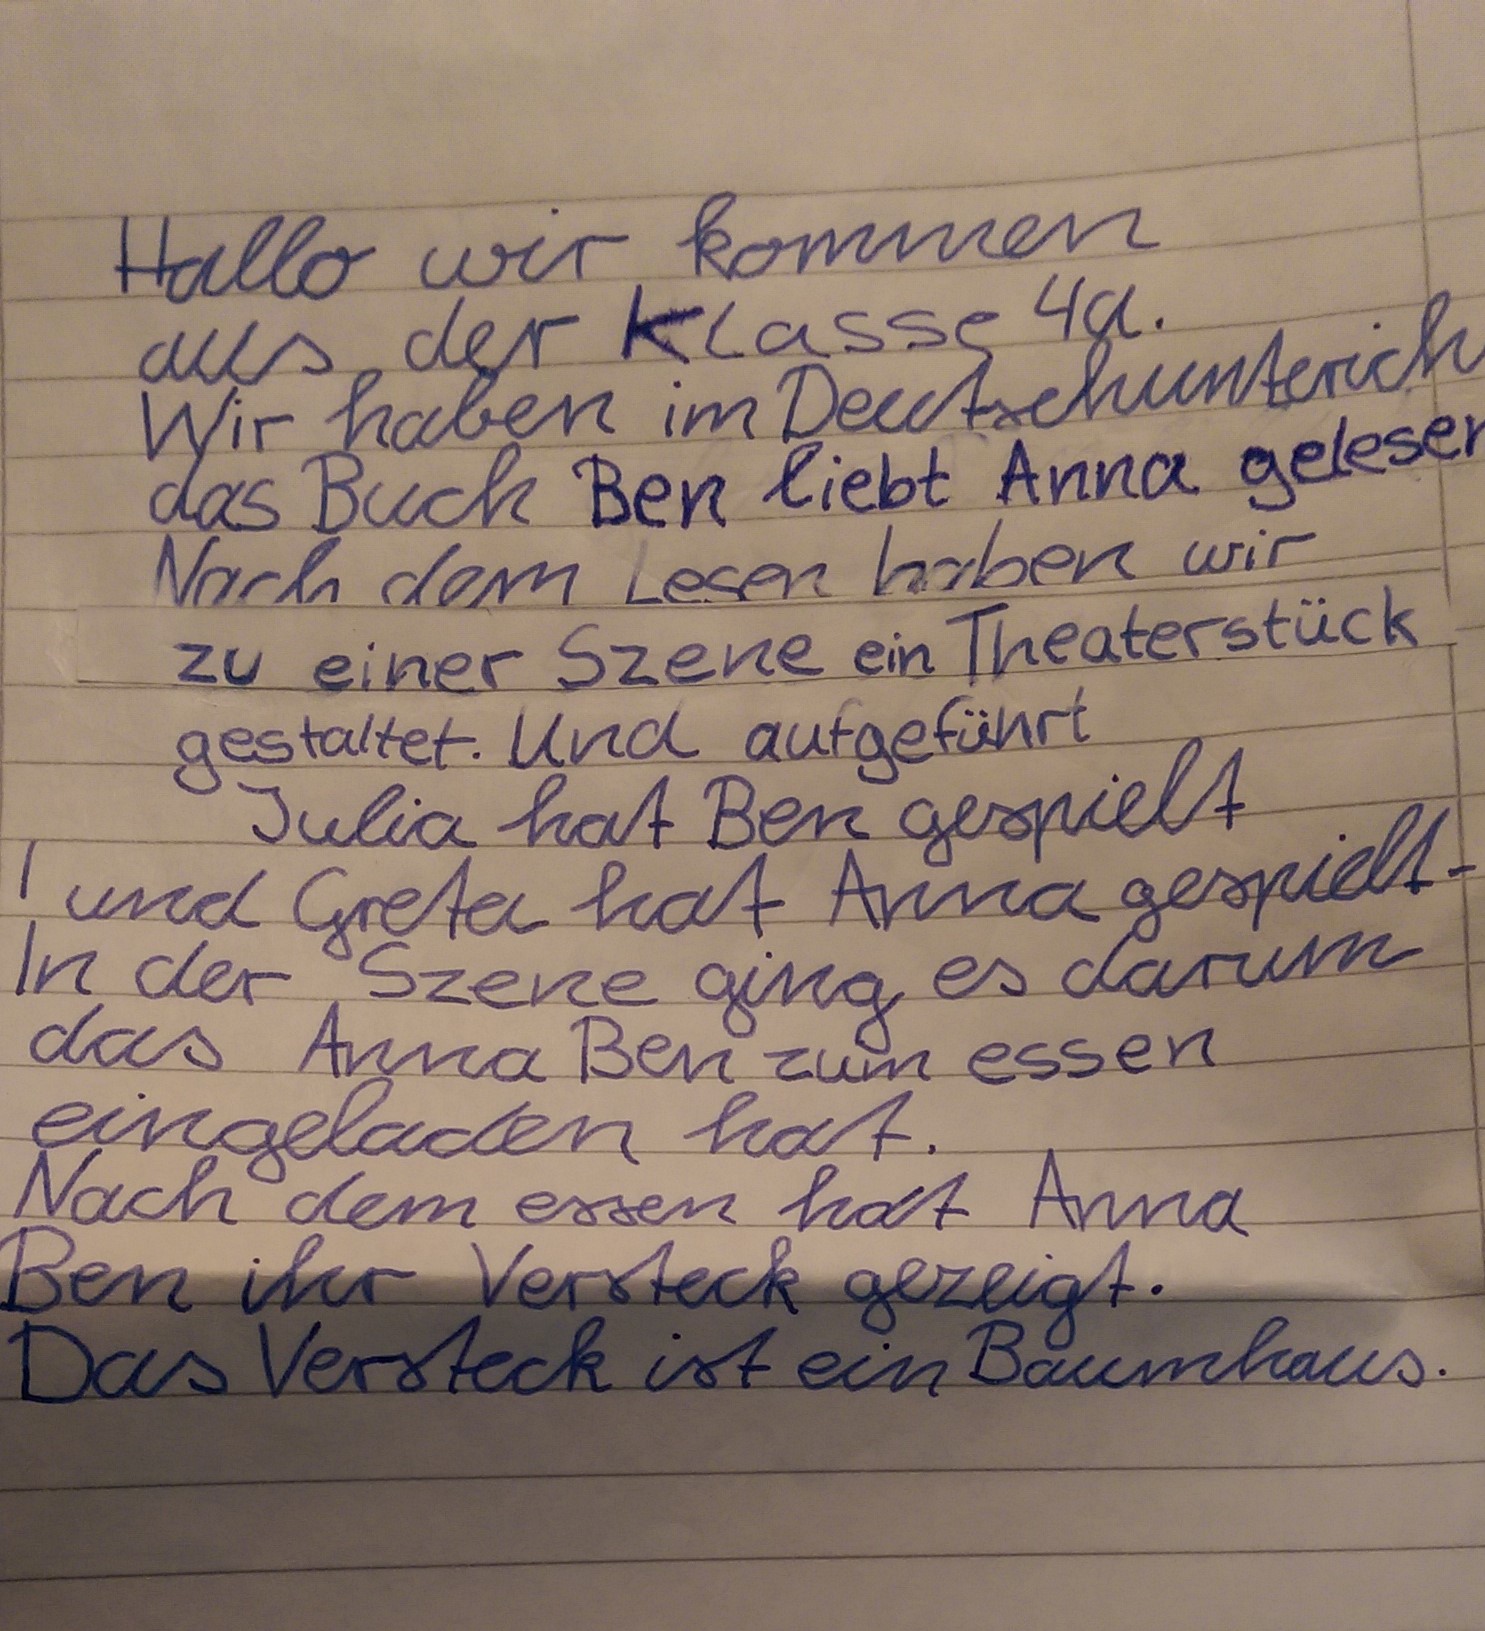 Hallo wir kommen
aus der Klasse 4a.
Wir haben im Deutschunterich
das Buch Ben liebt Anna gelesen
Nach dem Lesen haben wir
zu einer Szene ein Theaterstück
gestaltet. Und aufgeführt
Julia hat Ben gespielt
und Greta hat Anna gespielt-
In der Szene ging es darum
das Anna Ben zum essen
eingeladen hat.
Nach dem essen hat Anna
Ben ihr Versteck gezeigt.
Das Versteck ist ein Baumhaus.